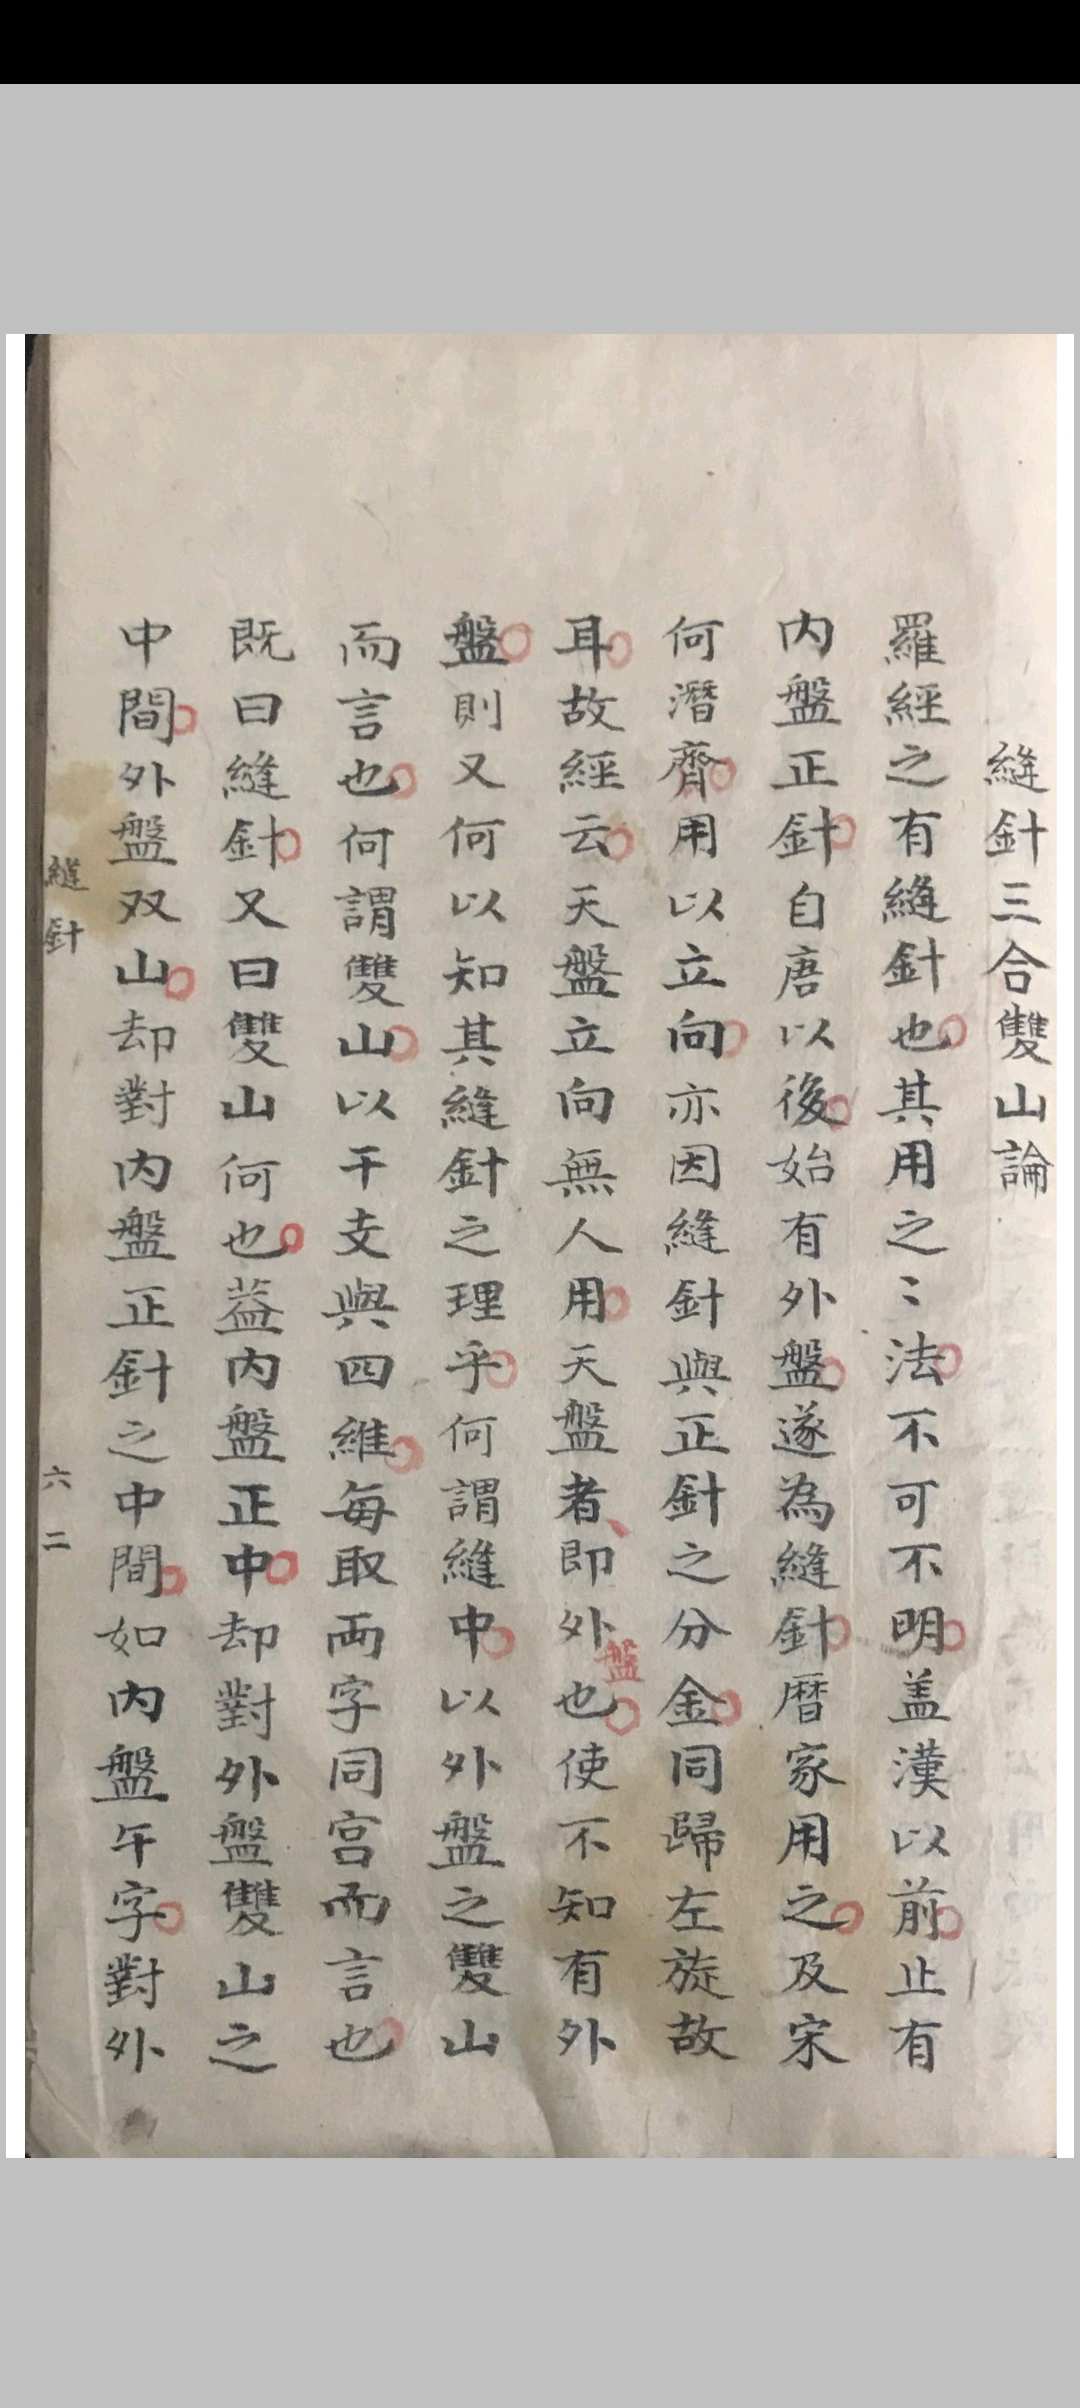 縫針三合雙山論
羅經之有縫針也其用之〻法不可不明盖漢以前止有
内盤正針自唐以後始有外盤遂為縫針曆家用之及宋
何潛齊用以立向亦因縫針與正針之分金同歸左旋故
耳故經云天盤立向無人用天盤者即外盤也使不知有外
盤則又何以知其縫針之理乎何謂縫中以外盤之雙山
而言也何謂雙山以干支與四維每取両字同宮而言也
既曰縫針又曰雙山何也葢内盤正中却對外盤雙山之
中間外盤双山却對内盤正針之中間如内盤午字對外
縫針
六二